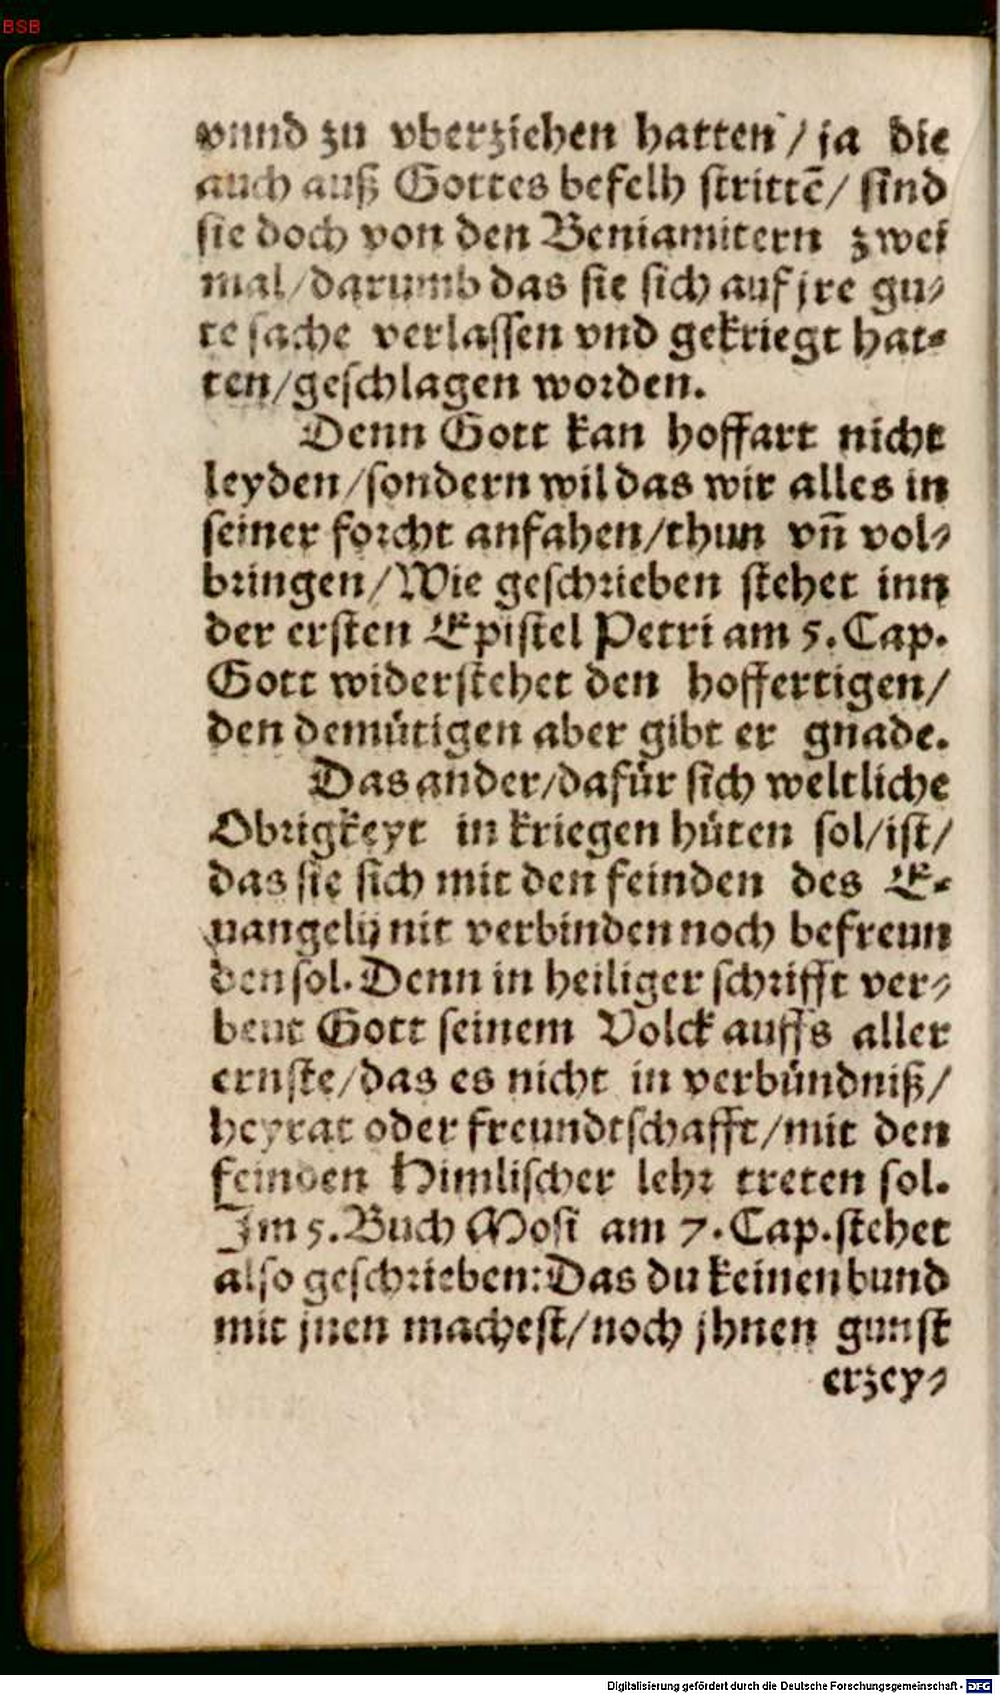 BSB
vnnd zu vberziehen hatten / ja die
auch auß Gottes befelh strittē / sind
sie doch von den Beniamitern zwei
mal / darumb das sie sich auf jre gu-
te sache verlassen vnd gekriegt hat-
ten / geschlagen worden.
Denn Gott kan hoffart nicht
leyden / sondern wil das wir alles in
seiner forcht anfahen / thun vn̄ vol-
bringen / Wie geschrieben stehet inn
der ersten Epistel Petri am 5. Cap.
Gott widerstehet den hoffertigen /
den demütigen aber gibt er gnade.
Das ander / dafür sich weltliche
Obrigkeyt in kriegen hüten sol / ist /
das sie sich mit den feinden des E-
uangelij nit verbinden noch befreun
den sol. Denn in heiliger schrifft ver-
beut Gott seinem Volck auffs aller
ernste / das es nicht in verbündniß /
heyrat oder freundtschafft / mit den
feinden Himlischer lehr treten sol.
Im 5. Buch Mosi am 7. Cap. stehet
also geschrieben: Das du keinen bund
mit jnen machest / noch jhnen gunst
erzey-
Digitalisierung gefördert durch die Deutsche Forschungsgemeinschaft - DFG